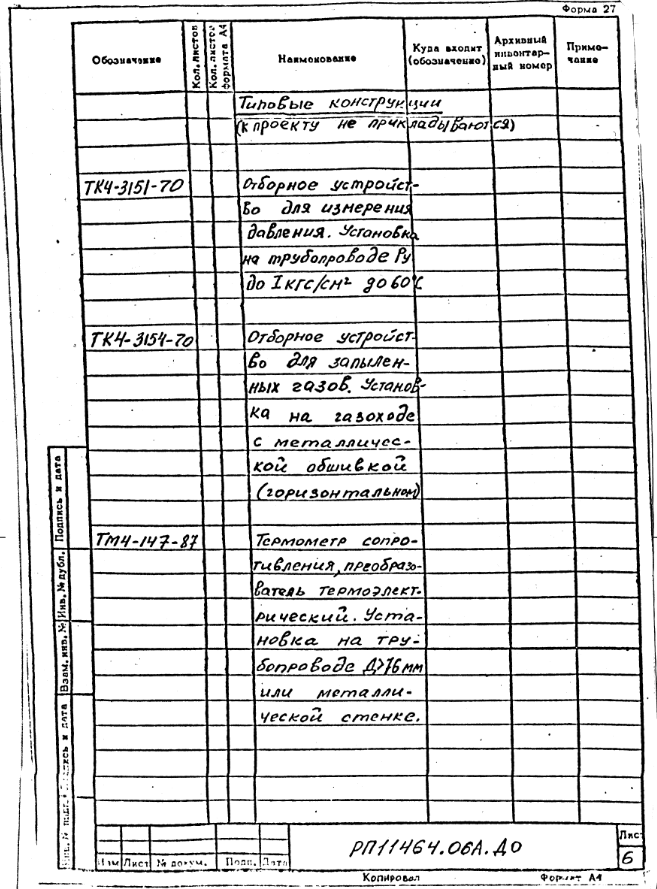 Форма 27
Обозначение
Кол. листов
Кол. листов формата А4
Наименование
Куда входит (обозначение)
Архивный инвентарный номер
Примечание
Типовые конструкции
(к проекту не прикладываются)
ТК4-3151-70
Отборное устройст-
во для измерения
давления. Установка
на трубопроводе Ру
до 1 кгс/см² до 60°С
ТК4-3154-70
Отборное устройст-
во для запылен-
ных газов. Установ-
ка на газоходе
с металличес-
кой обшивкой
(горизонтальном)
ТМ4-147-87
Термометр сопро-
тивления, преобразо-
ватель термоэлект-
рический. Уста-
новка на тру-
бопроводе Д>76 мм
или металли-
ческой стенке.
Подпись и дата
Инв. № дубл.
Взам. инв. №
Подпись и дата
Инв. № подл.
Изм Лист № докум. Подп. Дата
РП11464.06А.ДО
Лист
6
Копировал
Формат А4